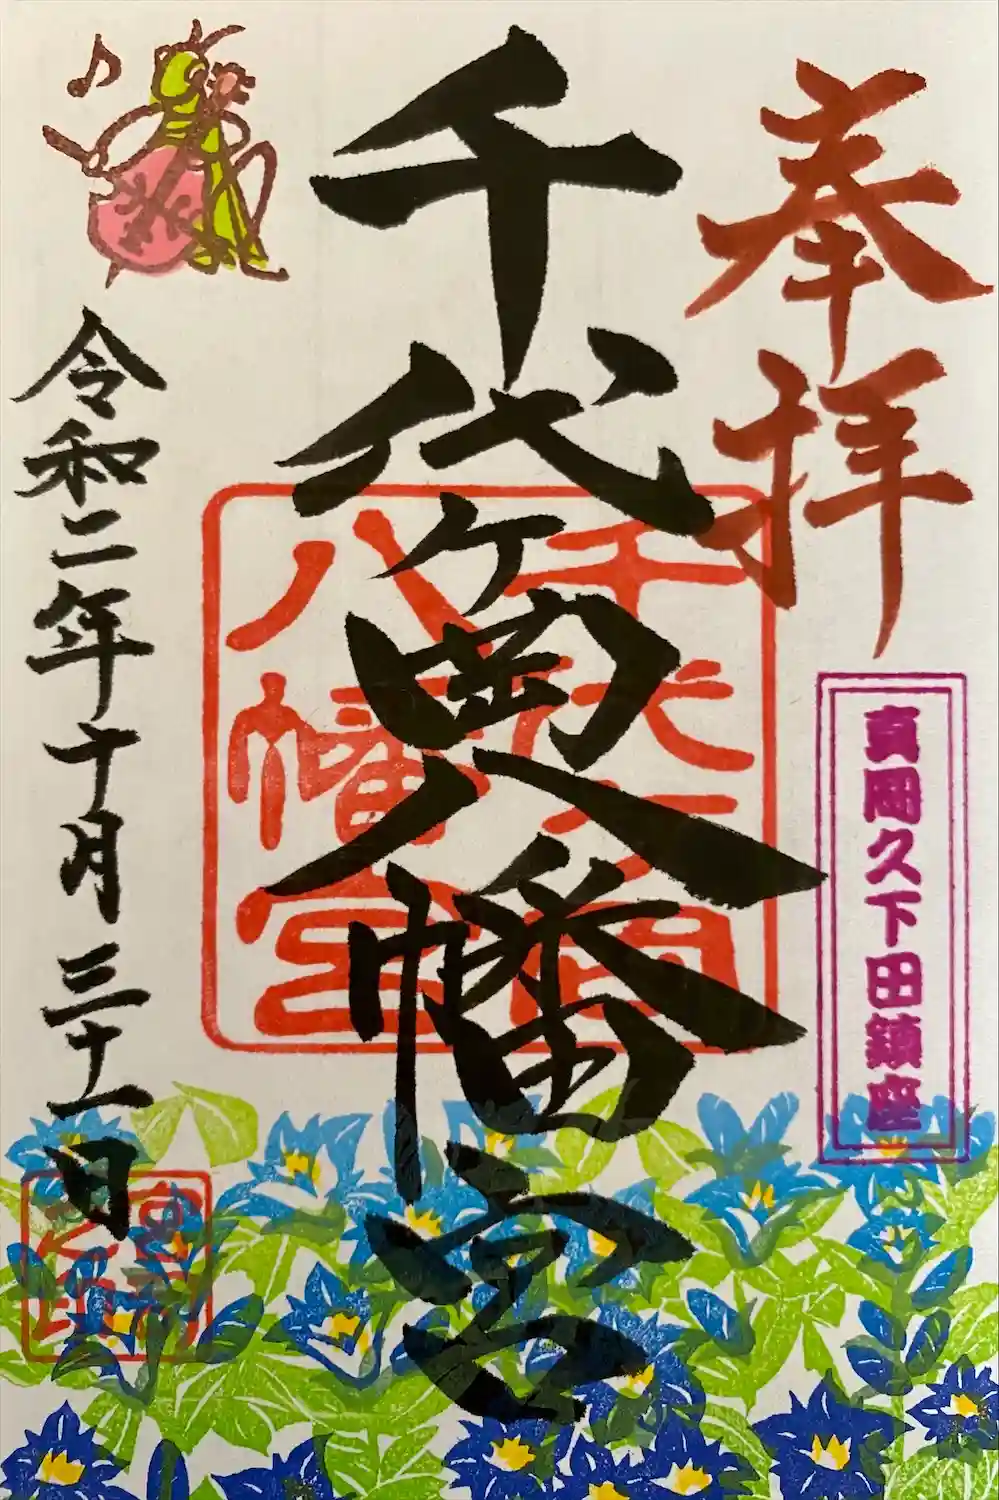 奉拝
真岡久下田鎮座
千代ヶ岡八幡宮
千代ヶ岡
八幡宮
令和二年十月三十一日